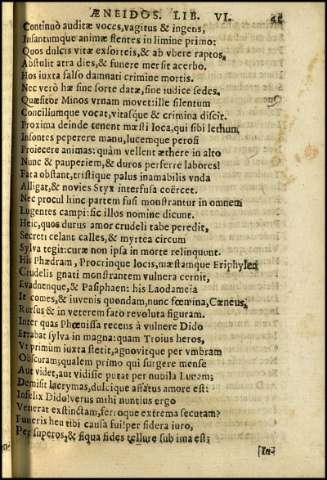 ÆNEIDOS. LIB. VI.
Continuò auditæ voces, vagitus & ingens,
Infantumque animæ flentes in limine primo:
Quos dulcis vitæ exsorteis, & ab vbere raptos,
Abstulit atra dies, & funere mersit acerbo.
Hos iuxta falso damnati crimine mortis.
Nec verò hæ sine sorte datæ, sine iudice sedes.
Quæsitor Minos vrnam movet: ille silentum
Conciliumque vocat, vitasque & crimina discit.
Proxima deinde tenent mœsti loca, qui sibi lethum
Insontes peperere manu, lucemque perosi
Proiecere animas: quàm vellent æthere in alto
Nunc & pauperiem, & duros perferre labores!
Fata obstant, tristique palus inamabilis vnda
Alligat, & novies Styx interfusa coërcet.
Nec procul hinc partem fusi monstrantur in omnem
Lugentes campi: sic illos nomine dicunt.
Heic, quos durus amor crudeli tabe peredit,
Secreti celant calles, & myrtea circum
Sylva tegit: curæ non ipsa in morte relinquunt.
His Phædram, Procrinque locis, mœstamque Eriphylen
Crudelis gnati monstrantem vulnera cernit,
Evadnenque, & Pasiphaen: his Laodameia
It comes, & iuvenis quondam, nunc fœmina, Cæneus,
Rursus & in veterem fato revoluta figuram.
Inter quas Phœnissa recens à vulnere Dido
Errabat sylva in magna: quam Troius heros,
Vt primum iuxta stetit, agnovitque per vmbram
Obscuram; qualem primo qui surgere mense
Aut videt, aut vidisse putat per nubila Lunam;
Demisit lacrymas, dulcique affatus amore est:
Infelix Dido, verus mihi nuntius ergo
Venerat exstinctam, ferroque extrema secutam?
Funeris heu tibi causa fui? per sidera iuro,
Per superos, & siqua fides tellure sub ima est;